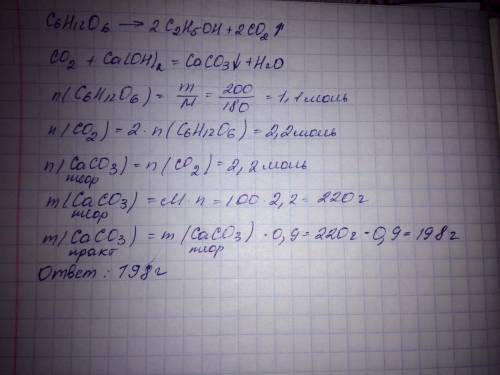 C6H12O6 → 2C2H5OH + 2CO2↑
CO2 + Ca(OH)2 = CaCO3↓ + H2O
n(C6H12O6) = m/M = 200/180 = 1,1 моль
n(CO2) = 2 · n(C6H12O6) = 2,2 моль
n(CaCO3) теор = n(CO2) = 2,2 моль
m(CaCO3) теор = M · n = 100 · 2,2 = 220 г
m(CaCO3) практ = m(CaCO3) теор · 0,9 = 220 г · 0,9 = 198 г
Ответ: 198 г